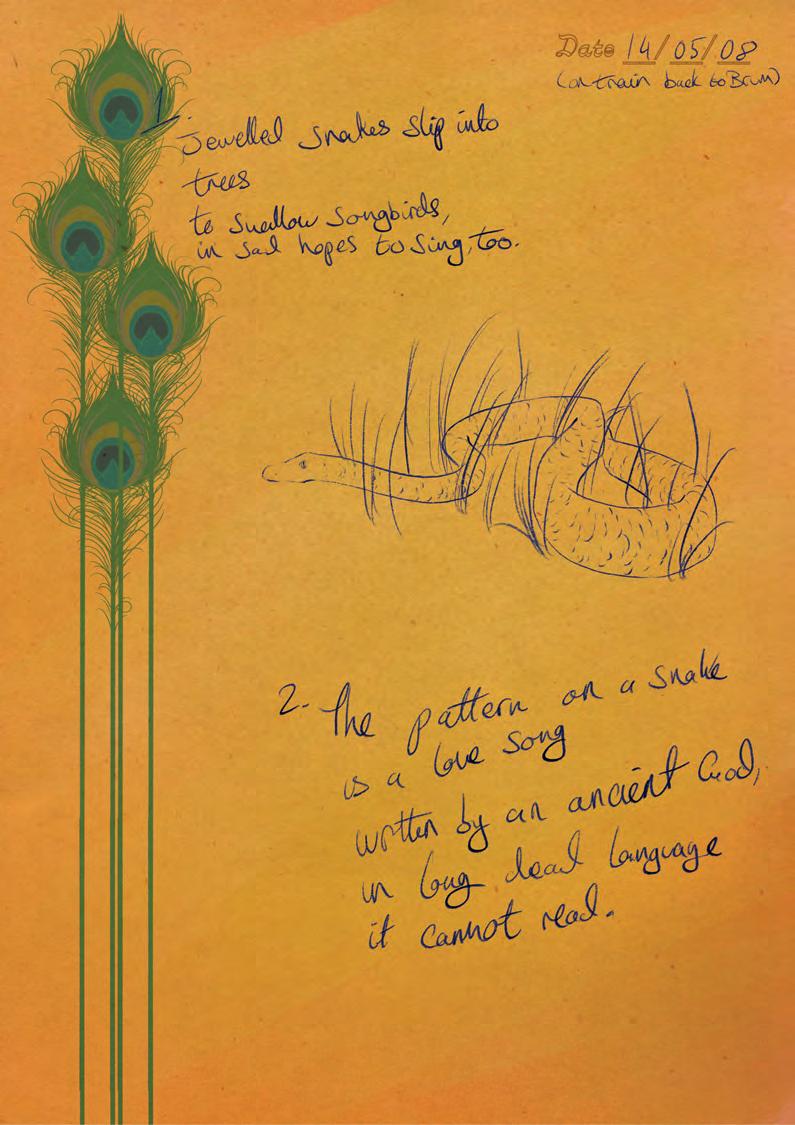 Date 14/05/08
(on train back to Brum)
1. Jewelled snakes slip into
trees
to swallow songbirds,
in sad hopes to sing, too.
2. The pattern on a snake
is a love song
written by an ancient God,
in long dead language
it cannot read.